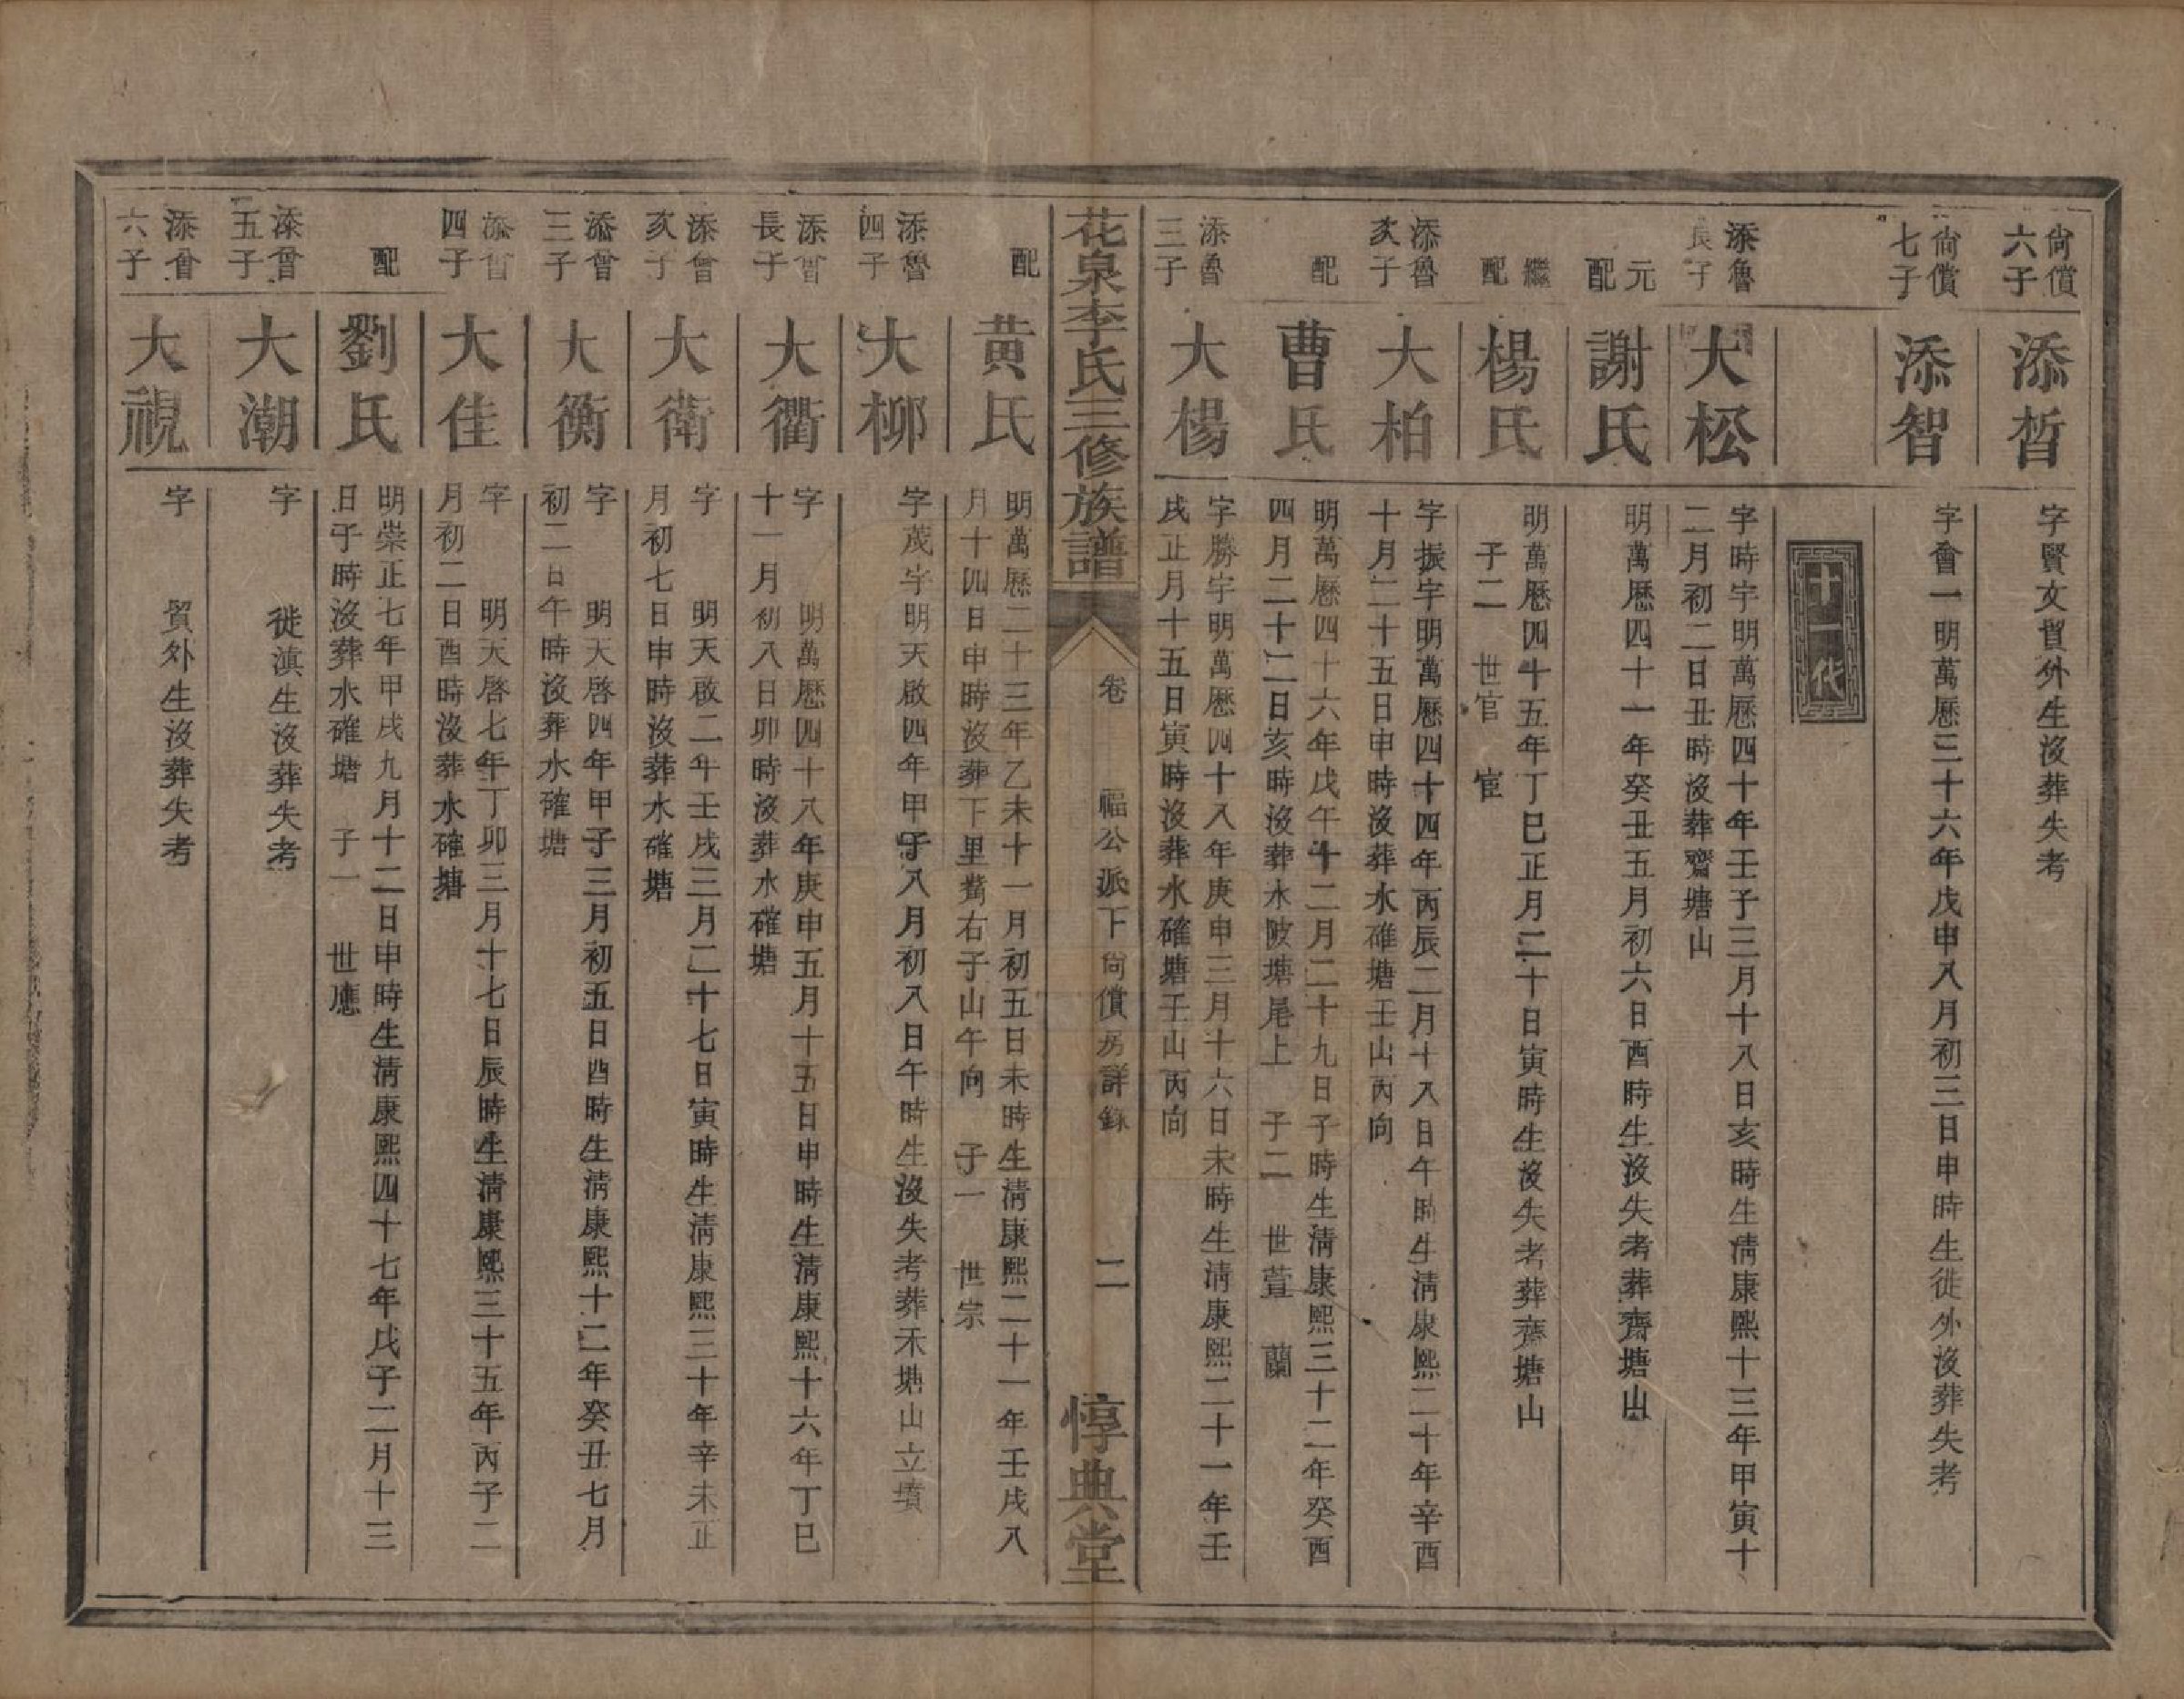 尙償
六子
添哲
字賢文貿外生沒葬失考
尙償
七子
添智
字會一明萬歷三十六年戊申八月初三日申時生徙外沒葬失考
十一代
添魯
長子
大松
字時宇明萬歷四十年壬子三月十八日亥時生淸康熙十三年甲寅十
二月初二日丑時沒葬齊塘山
元
配
謝氏
明萬歷四十一年癸丑五月初六日酉時生沒失考葬齊塘山
繼
配
楊氏
明萬歷四十五年丁巳正月二十日寅時生沒失考葬齊塘山
子二 世官 宦
添魯
次子
大柏
字振宇明萬歷四十四年丙辰二月十八日午時生淸康熙二十年辛酉
十月二十五日申時沒葬水碓塘壬山丙向
配
曹氏
明萬歷四十六年戊午十二月二十九日子時生淸康熙三十二年癸酉
四月二十二日亥時沒葬水陂塘尾上 子二 世萱 蘭
添魯
三子
大楊
字勝宇明萬歷四十八年庚申三月十六日未時生淸康熙二十一年壬
戌正月十五日寅時沒葬水確塘壬山丙向
花泉李氏三修族譜
卷 福公派下尙償房詳錄 二
惇典堂
配
黃氏
明萬歷二十三年乙未十一月初五日未時生淸康熙二十一年壬戌八
月十四日申時沒葬下里嵆右子山午向 子一 世宗
添魯
四子
大柳
字茂宇明天啟四年甲子八月初八日午時生沒失考葬禾塘山立墳
添曾
長子
大衢
字 明萬歷四十八年庚申五月十五日申時生淸康熙十六年丁巳
十一月初八日卯時沒葬水確塘
添曾
次子
大衛
字 明天啟二年壬戌三月二十七日寅時生淸康熙三十年辛未正
月初七日申時沒葬水確塘
添曾
三子
大衡
字 明天啓四年甲子三月初五日酉時生淸康熙十二年癸丑七月
初二日午時沒葬水確塘
添曾
四子
大佳
字 明天啓七年丁卯三月十七日辰時生淸康熙三十五年丙子二
月初二日酉時沒葬水確塘
配
劉氏
明崇正七年甲戌九月十二日申時生淸康熙四十七年戊子二月十三
日子時沒葬水確塘 子一 世應
添曾
五子
大潮
字 徙滇生沒葬失考
添曾
六子
大視
字 貿外生沒葬失考